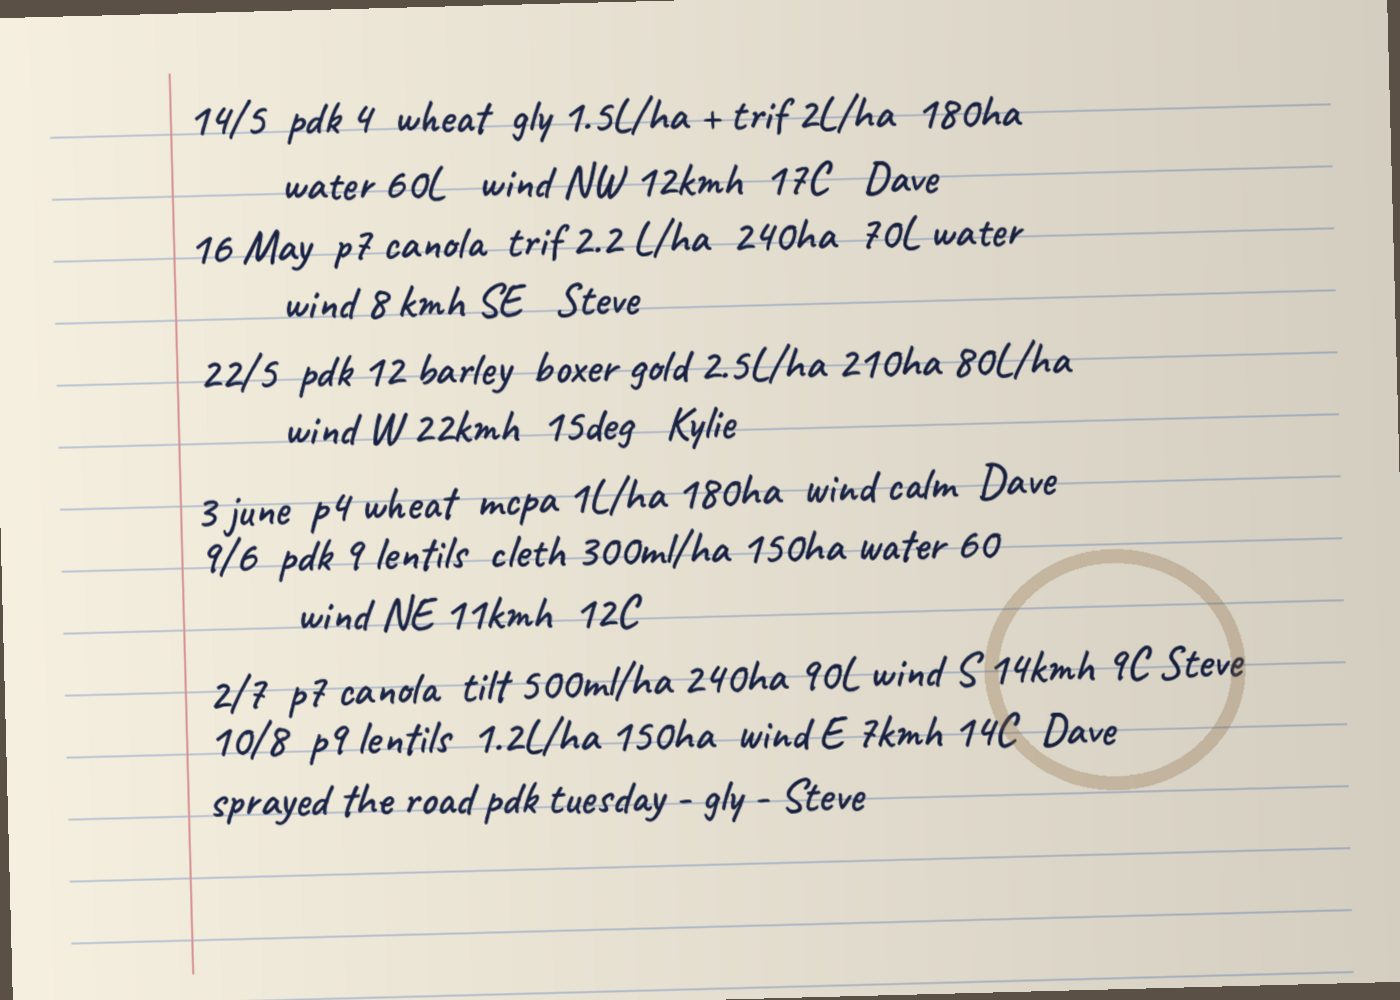 14/5 pdk 4 wheat gly 1.5L/ha + trif 2L/ha 180ha
water 60L wind NW 12kmh 17C Dave
16 May p7 canola trif 2.2 L/ha 240ha 70L water
wind 8 kmh SE Steve
22/5 pdk 12 barley boxer gold 2.5L/ha 210ha 80L/ha
wind W 22kmh 15deg Kylie
3 june p4 wheat mcpa 1L/ha 180ha wind calm Dave
9/6 pdk 9 lentils cleth 300ml/ha 150ha water 60
wind NE 11kmh 12C
2/7 p7 canola tilt 500ml/ha 240ha 90L wind S 14kmh 9C Steve
10/8 p9 lentils 1.2L/ha 150ha wind E 7kmh 14C Dave
sprayed the road pdk tuesday - gly - Steve